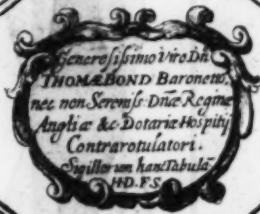 Generosissimo Viro Dñ
THOMÆ BOND Baronetto,
nec non Sereniss: Dñæ Reginæ
Angliæ &c Dotariæ Hospitij
Contrarotulatori.
Sigillorum hanc Tabulā
HD.F.S.